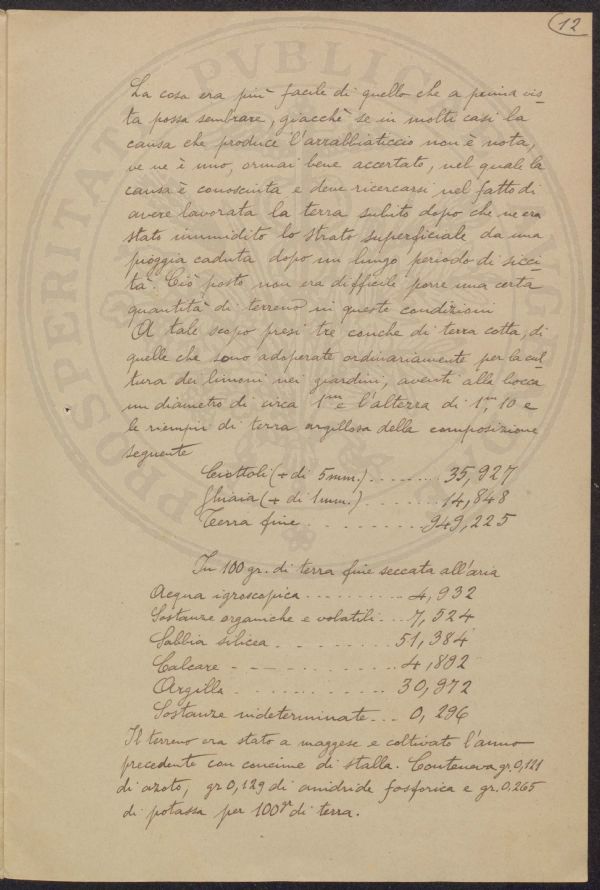 12
La cosa era più facile di quello che a prima vis-
ta possa sembrare, giacchè se in molti casi la
causa che produce l'arrabbiaticcio non è nota,
ve ne è uno, ormai bene accertato, nel quale la
causa è conosciuta e deve ricercarsi nel fatto di
avere lavorata la terra subito dopo che ne era
stato inumidito lo strato superficiale da una
pioggia caduta dopo un lungo periodo di sicci-
tà. Ciò posto non era difficile porre una certa
quantità di terreno in queste condizioni
A tale scopo presi tre conche di terra cotta, di
quelle che sono adoperate ordinariamente per la cul-
tura dei limoni nei giardini, aventi alla bocca
un diametro di circa 1m e l'altezza di 1m,10 e
le riempii di terra argillosa della composizione
seguente
Ciottoli (+ di 5mm.) ........ 35,927
Ghiaia (+ di 1mm.) ....... 14,848
Terra fine .......... 949,225
In 100 gr. di terra fine seccata all'aria
Acqua igroscopica .......... 4,932
Sostanze organiche e volatili ... 7,524
Sabbia silicea ......... 51,384
Calcare ......... 4,892
Argilla ........... 30,972
Sostanze indeterminate ... 0,296
Il terreno era stato a maggese e coltivato l'anno
precedente con concime di stalla. Conteneva gr.0,121
di azoto, gr 0,129 di anidride fosforica e gr.0,265
di potassa per 100gr di terra.
PROSPERITAT
PVBLIC